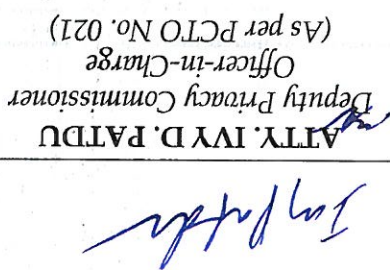 ATTY. IVY D. PATDU
Deputy Privacy Commissioner
Officer-in-Charge
(As per PCTO No. 021)